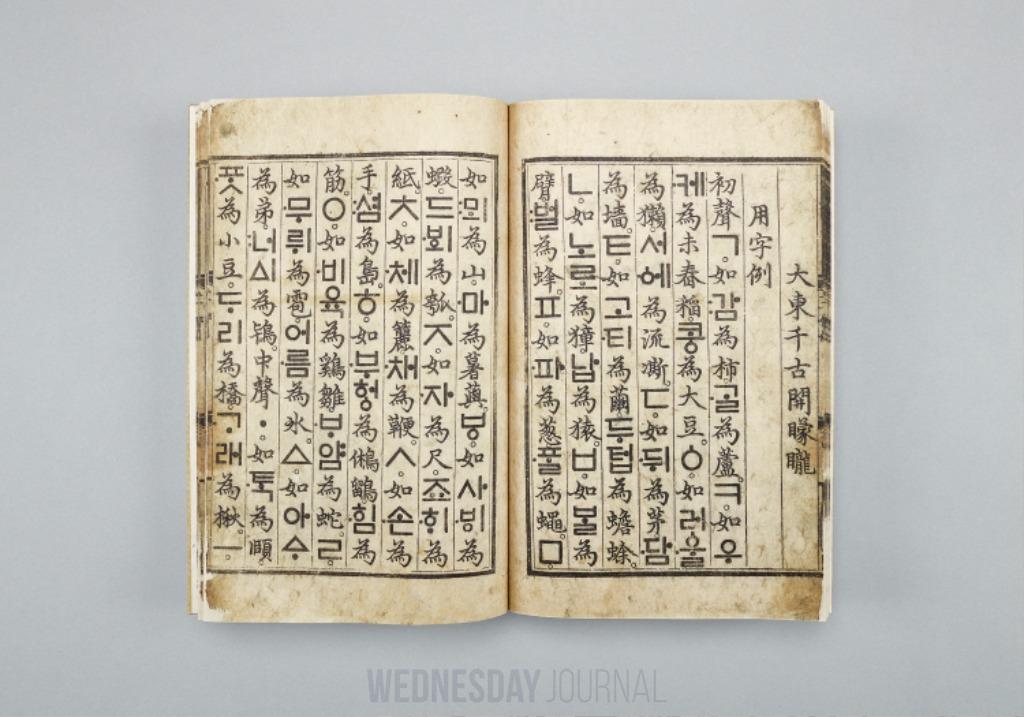 大東千古開矇矓
用字例
初聲ㄱ。如감為柿。ᄀᆞᆯ為蘆。ㅋ。如우
케為未舂稻。콩為大豆。ㆁ。如러ᅌᅮᆯ
為獺。서ᅌᅦ為流凘。ㄷ。如뒤為茅。담
為墻。ㅌ。如고티為繭。두텁為蟾蜍。
ㄴ。如노로為獐。납為猿。ㅂ。如ᄇᆞᆯ為
臂。벌為蜂。ㅍ。如파為葱。ᄑᆞᆯ為蠅。ㅁ。
如뫼為山。마為薯藇。ㅸ。如사ᄫᅵ為
蝦。드ᄫᅴ為瓠。ㅈ。如자為尺。죠ᄒᆡ為
紙。ㅊ。如체為籭。채為鞭。ㅅ。如손為
手。셤為島。ㅎ。如부헝為鵂鶹。힘為
筋。ㅇ。如비육為鷄雛。ᄇᆞ얌為蛇。ㄹ。
如무뤼為雹。어름為氷。ㅿ。如아ᅀᆞ
為弟。너ᅀᅵ為鴇。中聲ㆍ。如ᄐᆞᆨ為頤。
ᄑᆞᆺ為小豆。ᄃᆞ리為橋。ᄀᆞ래為楸。ㅡ。
WEDNESDAY JOURNAL